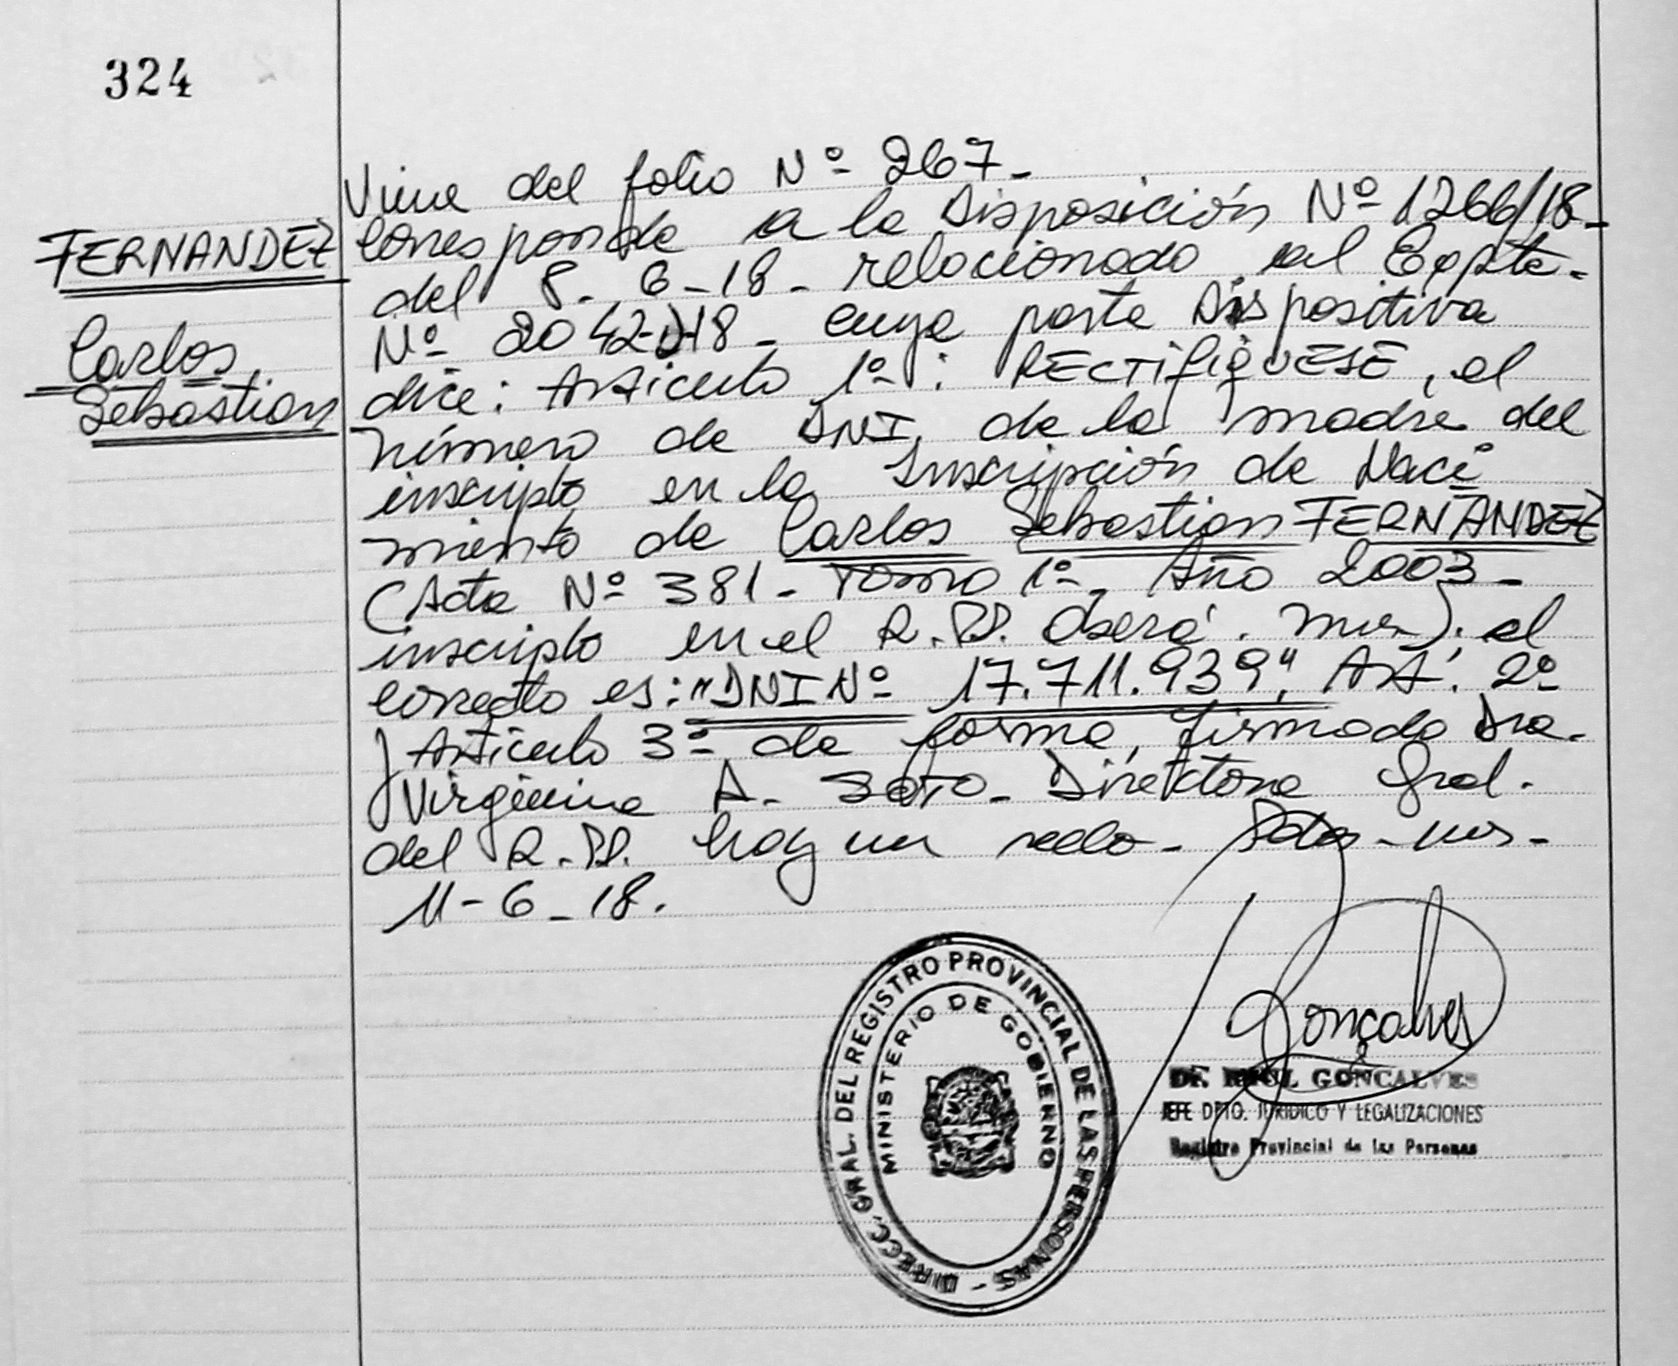 324
Viene del folio Nº 267-
FERNANDEZ
Carlos
Sebastian
corresponde a la Disposición Nº 1266/18-
del 8-6-18- relacionado al Expte-
Nº 2042-D-18- cuya parte Dispositiva
dice: Artículo 1º: RECTIFIQUESE, el
número de DNI, de la madre del
inscripto en la Inscripción de Naci
miento de Carlos Sebastian FERNANDEZ
(Acta Nº 381- Tomo 1º- Año 2003-
inscripto en el R.PP. Oberá. Mnes). el
correcto es: "DNI Nº 17.711.939", Art. 2º
y Artículo 3º de forma, firmado Dra.
Virginia A. SOTO- Directora Gral.
del R.PP. hay un sello- Pdas-Mnes-
11-6-18.
DIRECC. GRAL. DEL REGISTRO PROVINCIAL DE LAS PERSONAS -
MINISTERIO DE GOBIERNO
Gonçalves
Dr. RAUL GONCALVES
JEFE DPTO. JURIDICO Y LEGALIZACIONES
Registro Provincial de las Personas